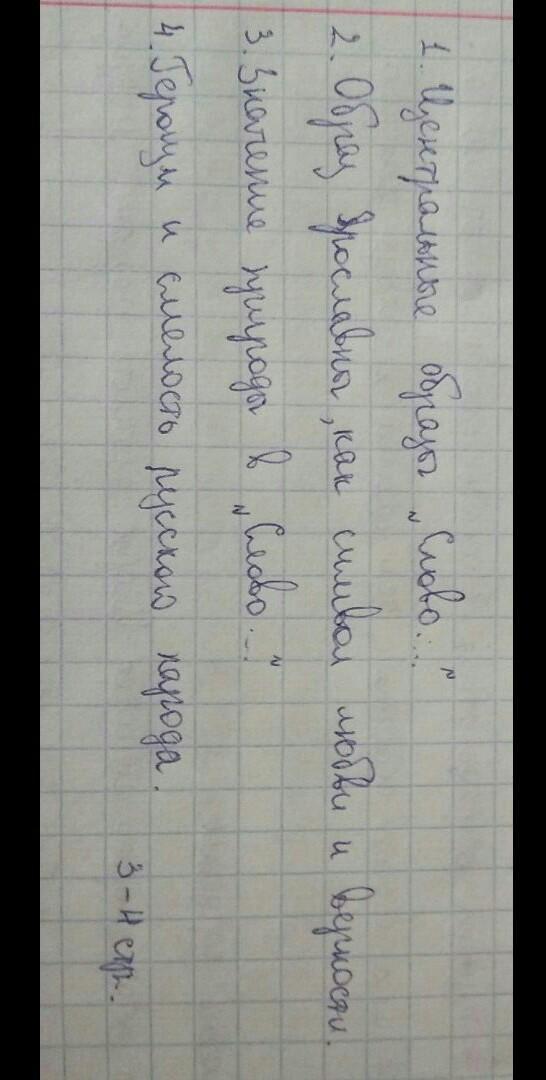 1. Центральные образы „Слово..."
2. Образ Ярославны, как символ любви и верности.
3. Значение природы в „Слово..."
4. Героизм и смелость русского народа.
3-4 стр.